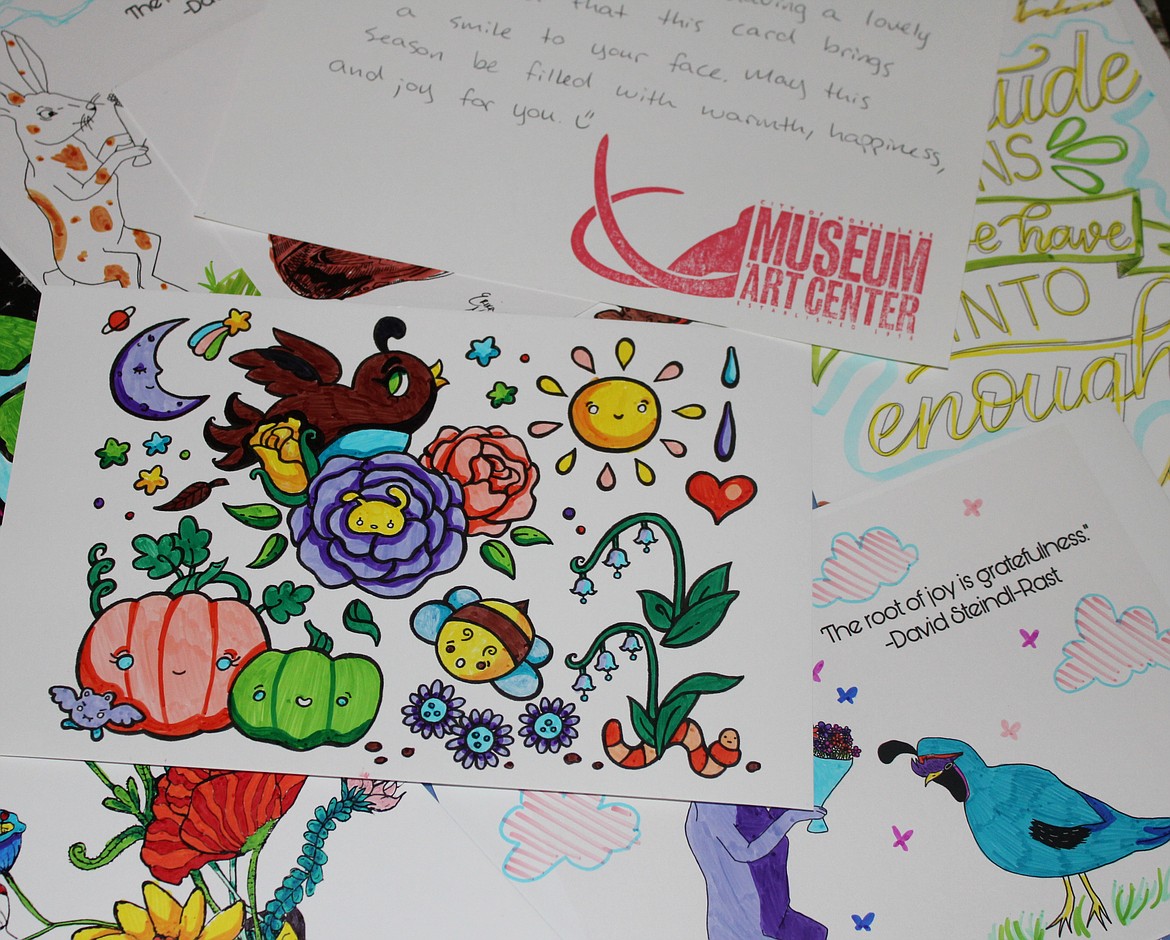 The
-Da
having a lovely
that this card brings
a smile to your face. May this
season be filled with warmth, happiness,
and joy for you.
CITY OF MOSES LAKE
MUSEUM
& ART CENTER
ESTABLISHED 1958
ude
NS
e have
INTO
enough
"The root of joy is gratefulness."
-David Steindl-Rast